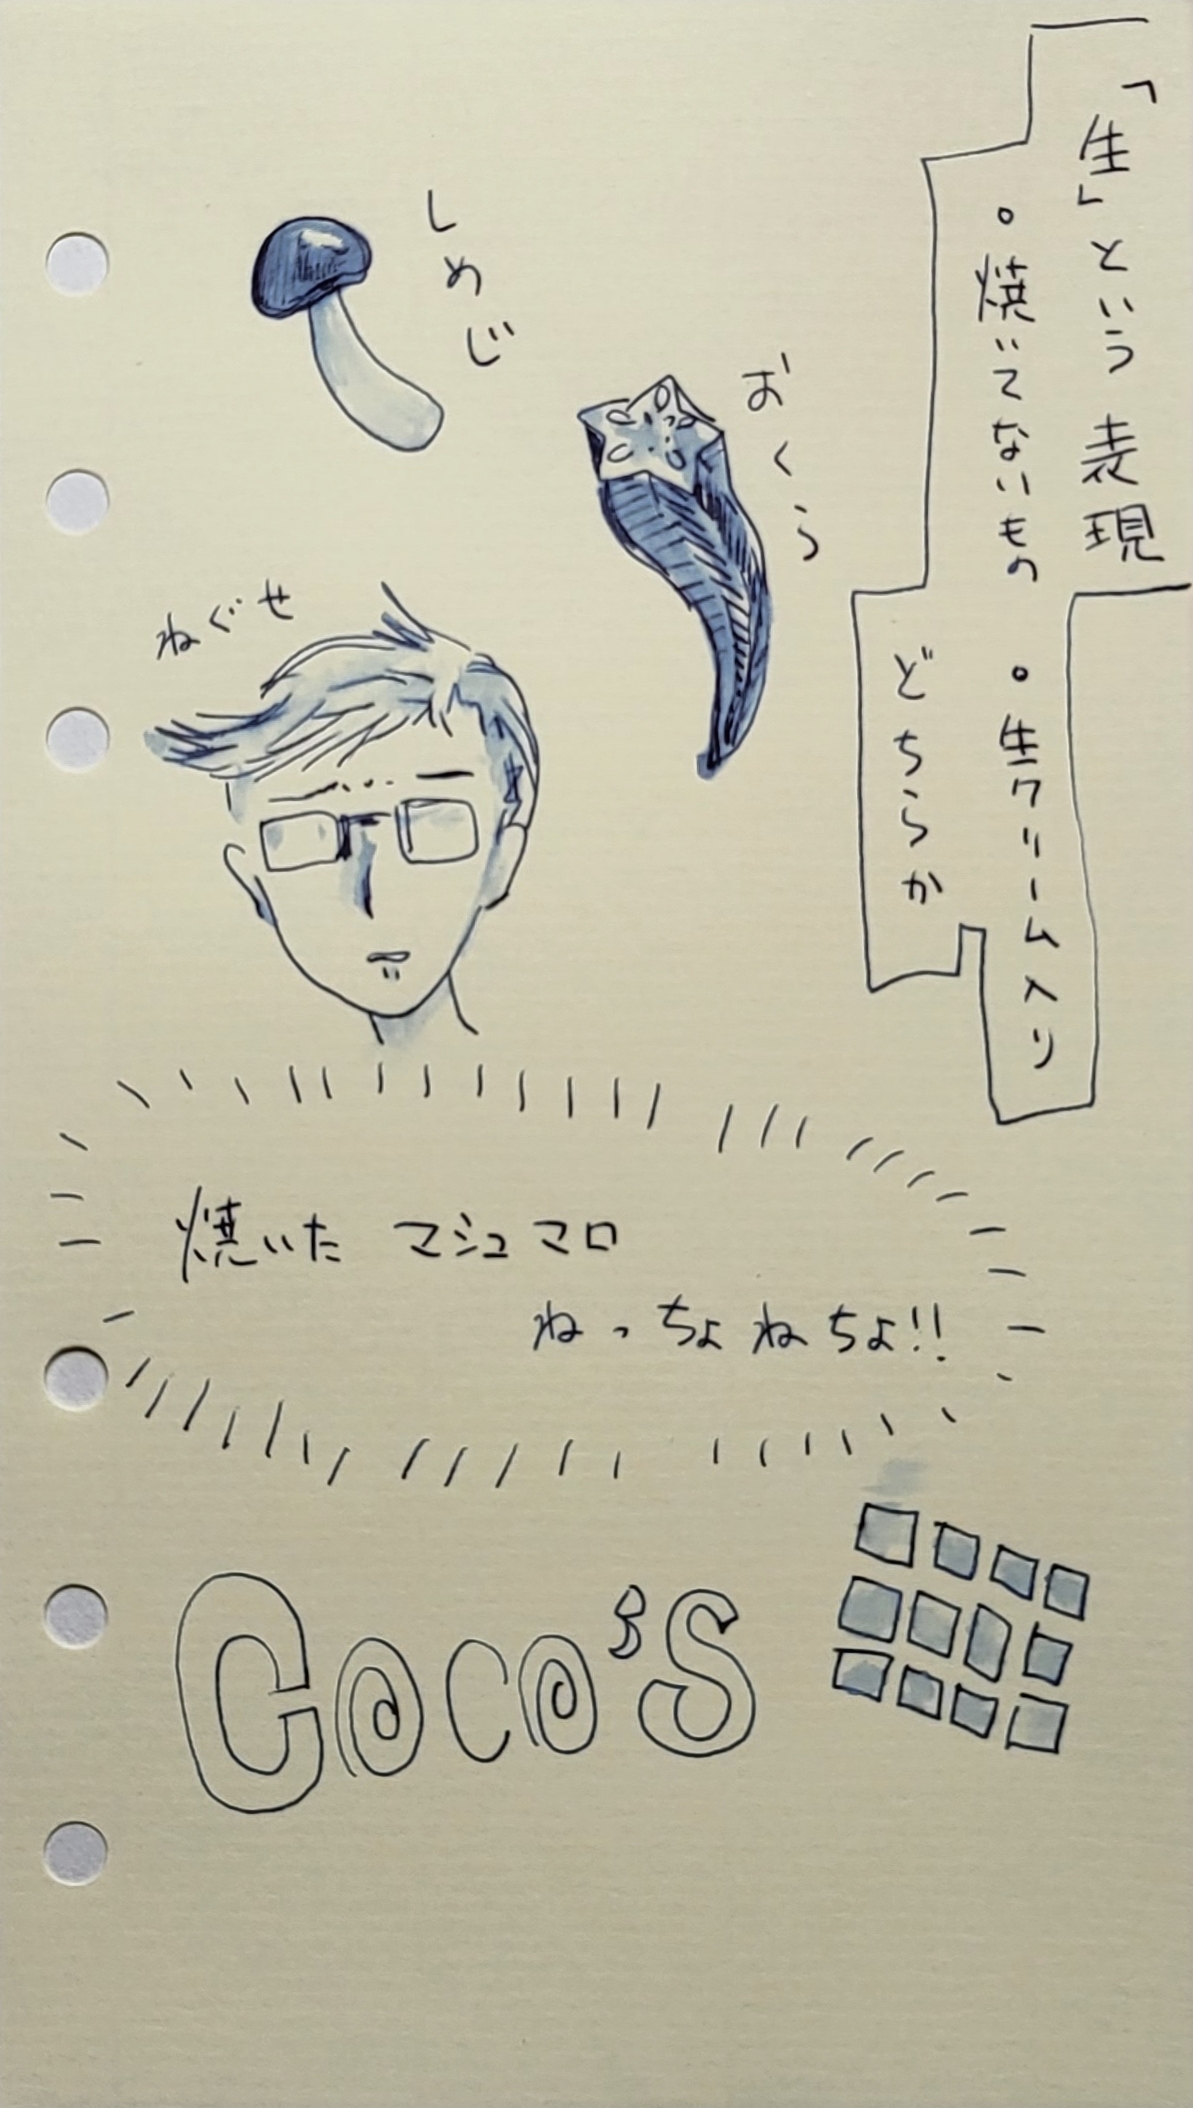 「生」という表現
・焼いてないもの
・生クリーム入り
どちらか
しめじ
おくら
ねぐせ
焼いた マシュマロ
ねっちょねちょ!!
Coco'S